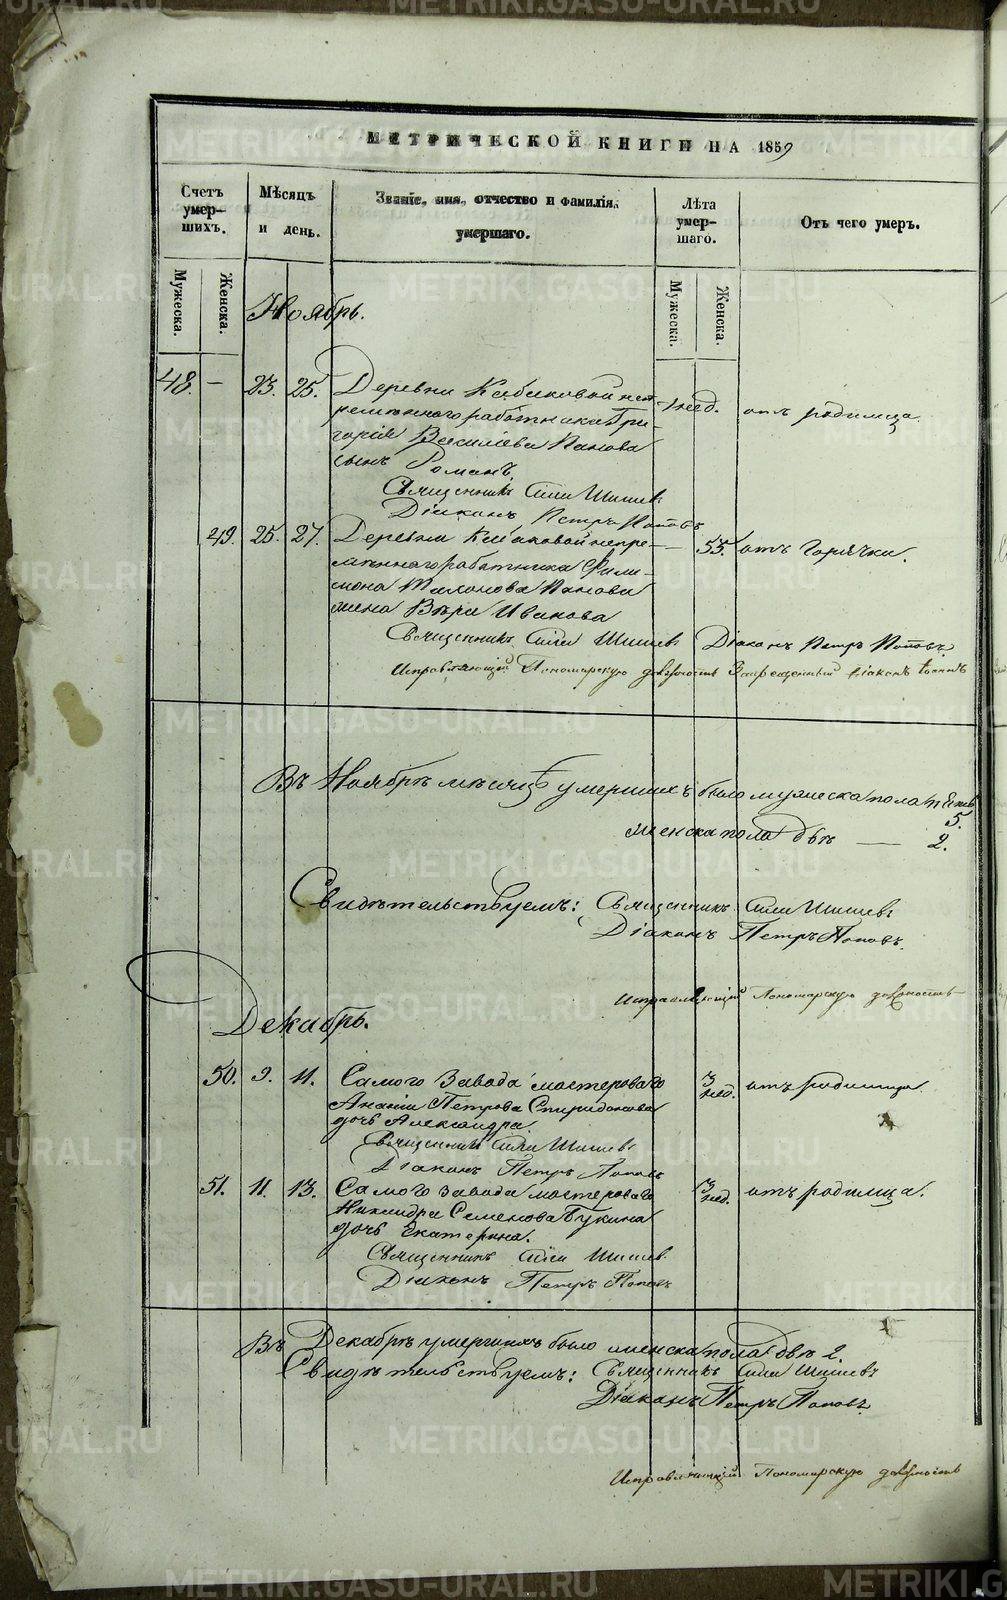 МЕТРИЧЕСКОЙ КНИГИ НА 1859
Счетъ умер-шихъ.
Мѣсяцъ и день.
Званіе, имя, отчество и фамилія, умершаго.
Лѣта умер-шаго.
Отъ чего умеръ.
Мужеска.
Женска.
Мужеска.
Женска.
Ноябрь.
48. — 23. 25. Деревни Кабаковой неп
ременнаго работника Гри- нед. отъ родимца
горія Василіева Панова
сынъ Романъ
Священникъ Шишевъ
Діаконъ Петръ Поповъ
49. 25. 27. Деревни Кабаковой непре- — 55. отъ горячки.
меннаго работника Фили-
мона Панова
жена Вѣра Иванова
Священникъ Шишевъ Діаконъ Петръ Поповъ.
Исправляющій Пономарскую должность Запрещенный діаконъ
Въ Ноябрѣ мѣсяцѣ умершихъ было мужеска пола пять
5.
женска пола двѣ — 2.
Свидѣтельствуемъ: Священникъ Шишевъ
Діаконъ Петръ Поповъ.
Исправляющій Пономарскую должность
Декабрь.
50. 9. 11. Самого Завода мастероваго 3 нед. отъ родимца.
Ананіи Петрова Спиридонова
дочь Александра.
Священникъ Шишевъ
Діаконъ Петръ Поповъ
51. 11. 13. Самого Завода мастероваго 3 нед. отъ родимца.
Никандра Семенова Букина
дочь Екатерина.
Священникъ Шишевъ
Діаконъ Петръ Поповъ
Въ Декабрѣ умершихъ было женска пола двѣ 2.
Свидѣтельствуемъ: Священникъ Шишевъ
Діаконъ Петръ Поповъ.
Исправляющій Пономарскую должность
METRIKI.GASO-URAL.RU